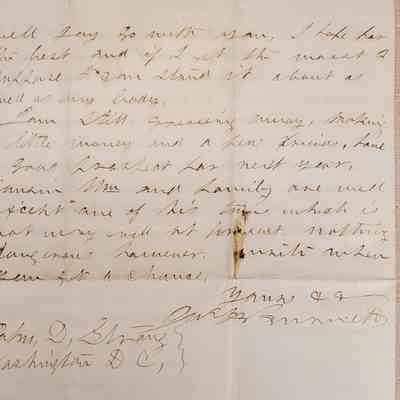 well say so with you, I hope for
the best and if I get the worst I
suppose I can stand it about as
well as any body.
I am still greasing away, making
little money and a few friends, have
good prospect for next year.
Wm and family are well
except one of his which is
not very well at present nothing
dangerous however. write when
you get a chance,
Yours &c
Bennett
D, Strong
Washington D C,